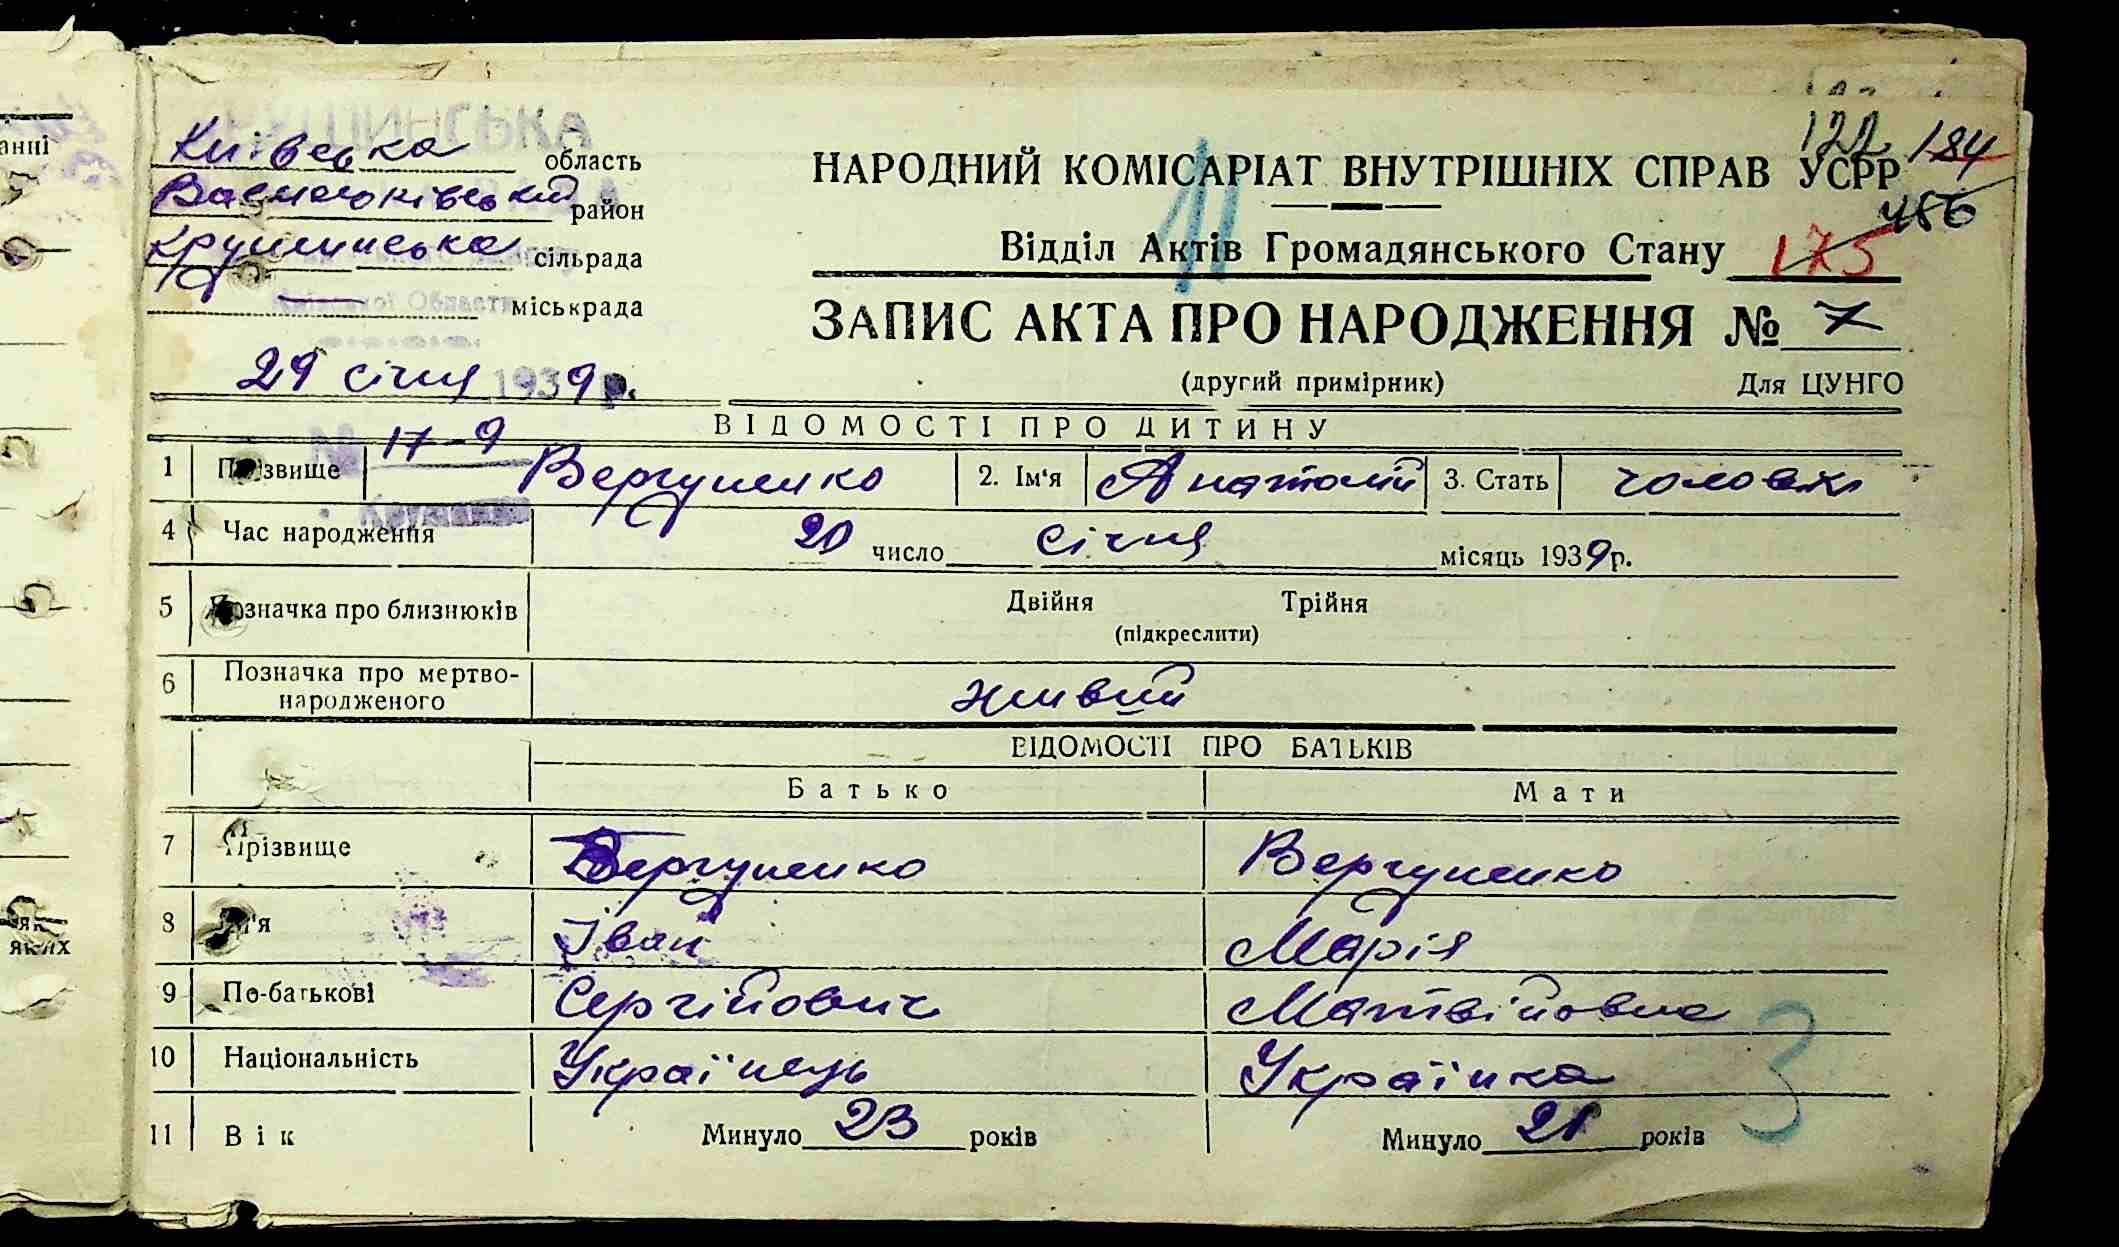 КРУШИНСЬКА
Київська область
Васильківський район
Крушинська сільрада
міськрада
29 січня 1939 р.
№ 17-9
122 184
186
НАРОДНИЙ КОМІСАРІАТ ВНУТРІШНІХ СПРАВ УСРР
11
Відділ Актів Громадянського Стану 175
ЗАПИС АКТА ПРО НАРОДЖЕННЯ № 7
(другий примірник) Для ЦУНГО
ВІДОМОСТІ ПРО ДИТИНУ
1 Прізвище Вергуненко 2. Ім'я Анатолій 3. Стать чоловіч
4 Час народження 20 число січня місяць 1939 р.
5 Позначка про близнюків Двійня Трійня
(підкреслити)
6 Позначка про мертво-
народженого живий
ВІДОМОСТІ ПРО БАТЬКІВ
Батько Мати
7 Прізвище Вергуненко Вергуненко
8 Ім'я Іван Марія
9 По-батькові Сергійович Матвійовна
10 Національність Українець Українка
11 Вік Минуло 23 років Минуло 21 років
3
анні
як
яких